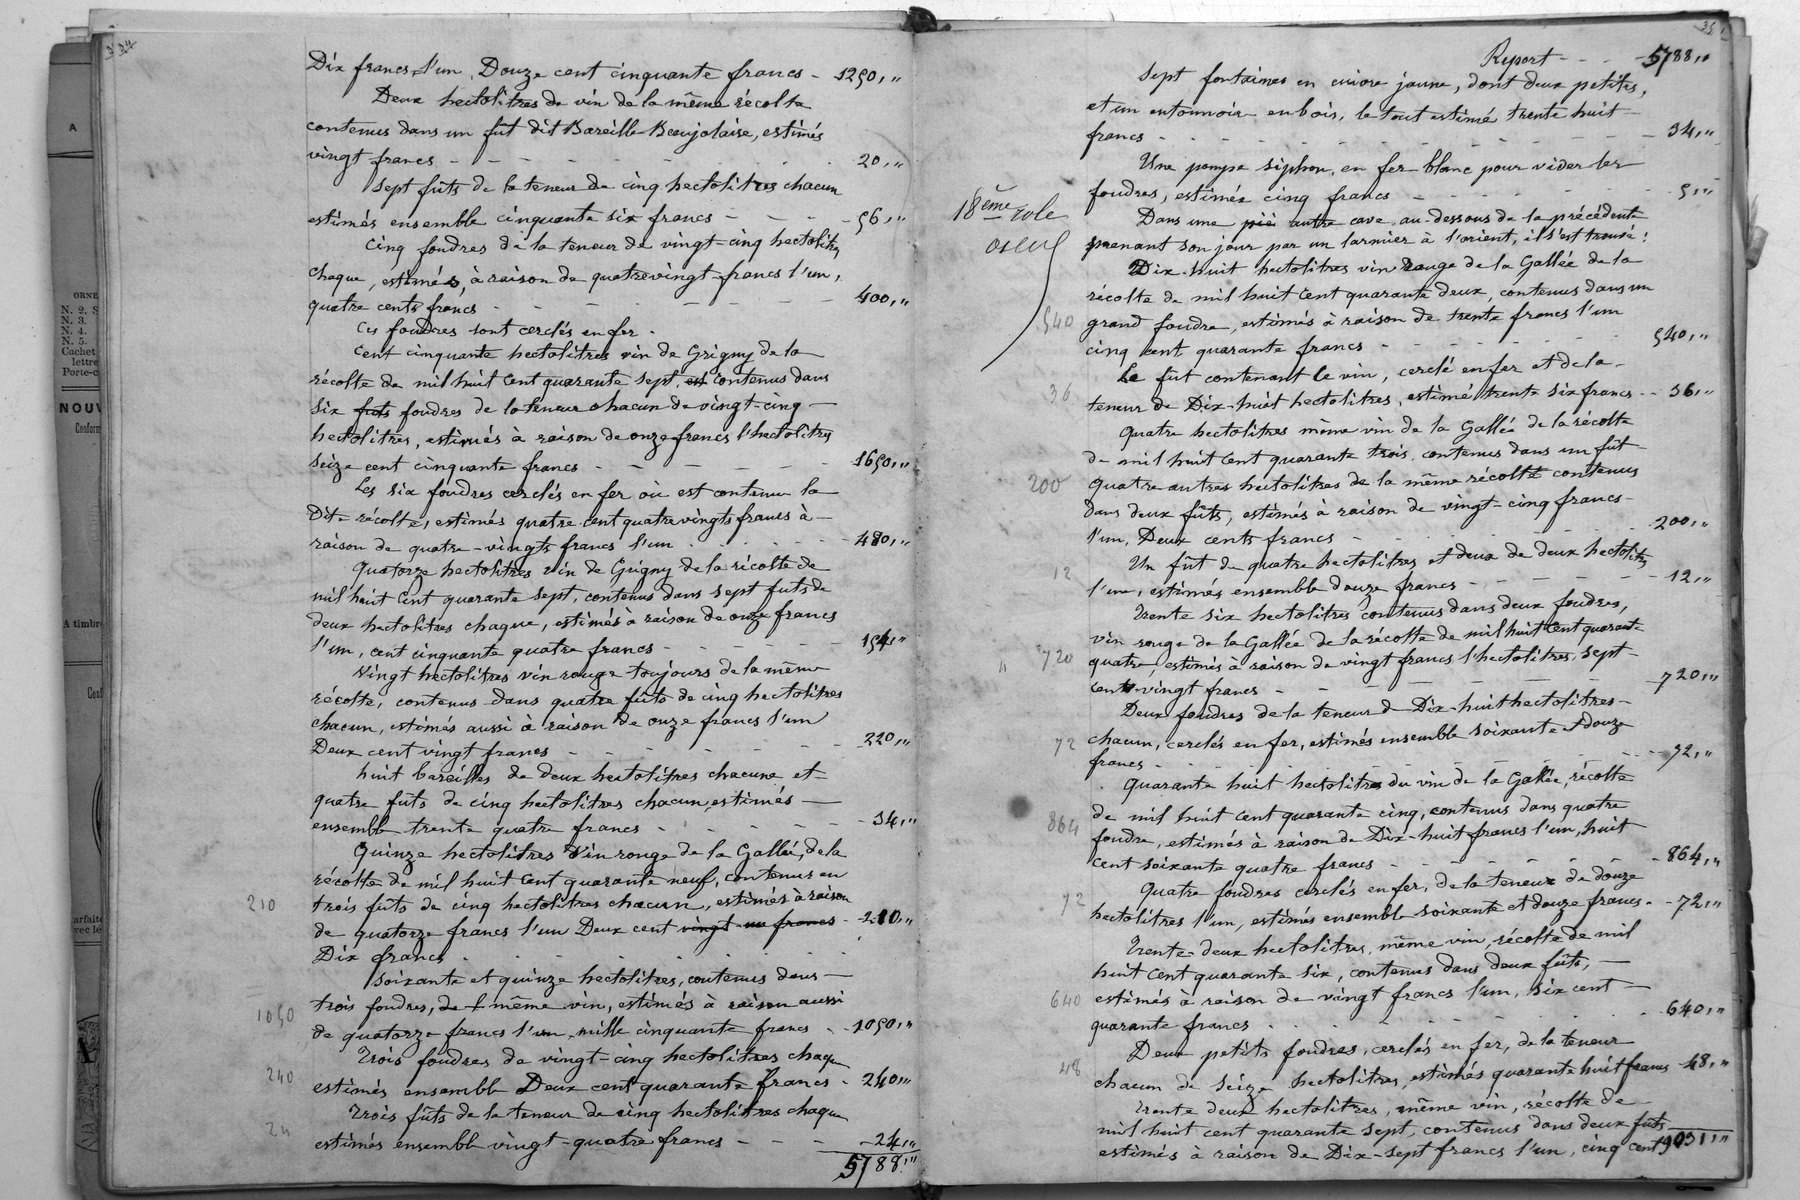 334
Dix francs l'un, Douze cent cinquante francs - 1250,"
Deux hectolitres de vin de la même récolte
contenus dans un fût dit Bareille Beaujolaise, estimés
vingt francs - - - - - 20,"
Sept fûts de la teneur de cinq hectolitres chacun
estimés ensemble cinquante six francs - - - 56,"
Cinq foudres de la teneur de vingt-cinq hectolitres
chaque, estimés, à raison de quatrevingt francs l'un,
quatre cents francs - - - - - 400,"
Ces foudres sont cerclés en fer.
Cent cinquante hectolitres vin de Grigny de la
récolte de mil huit cent quarante sept, est contenus dans
six futs foudres de la teneur chacun de vingt-cinq
hectolitres, estimés à raison de onze francs l'hectolitres
seize cent cinquante francs - - - - - 1650,"
Les six foudres cerclés en fer où est contenu la
Dite récolte, estimés quatre cent quatre vingts francs à
raison de quatre-vingts francs l'un - - - - 480,"
Quatorze hectolitres vin de Grigny de la récolte de
mil huit cent quarante sept, contenus dans sept futs de
deux hectolitres chaque, estimés à raison de onze francs
l'un, cent cinquante quatre francs - - - - 154"
Vingt hectolitres vin rouge toujours de la même
récolte, contenus dans quatre fûts de cinq hectolitres
chacun, estimés aussi à raison de onze francs l'un
Deux cent vingt francs - - - - - 220,"
huit bareilles de deux hectolitres chacune et
quatre fûts de cinq hectolitres chacun estimés
ensemble trente quatre francs - - - - 34,"
Quinze hectolitres Vin rouge de la Gallée, de la
récolte de mil huit cent quarante neuf, contenus en
210 trois fûts de cinq hectolitres chacun, estimés à raison
de quatorze francs l'un Deux cent vingt un francs - 210,"
Dix francs - - - - -
Soixante et quinze hectolitres, contenus dans
1050 trois foudres, de l même vin, estimés à raison aussi
de quatorze francs l'un mille cinquante francs - 1050,"
Trois foudres de vingt-cinq hectolitres chaque
240 estimés ensemble Deux cent quarante francs - 240,"
Trois fûts de la teneur de cinq hectolitres chaque
24 estimés ensemble vingt-quatre francs - - - 24,"
5788,"
Report - - - 5788,"
Sept fontaines en cuivre jaune, dont deux petites,
et un entonnoir en bois, le tout estimé trente huit
francs - - - - - 34,"
Une pompe siphon, en fer blanc pour vider les
foudres, estimée cinq francs - - - - 5,"
18ème role
Dans une piè autre cave au-dessous de la précédente
prenant son jour par un larmier à l'orient, il s'est trouvé :
Dix-huit hectolitres vin rouge de la Gallée de la
récolte de mil huit cent quarante deux, contenus dans un
540 grand foudre, estimés à raison de trente francs l'un
cinq cent quarante francs - - - - 540,"
Le fût contenant le vin, cerclé en fer et de la
36 teneur de Dix-huit hectolitres, estimé trente six francs - 36,"
Quatre hectolitres même vin de la Gallée de la récolte
de mil huit cent quarante trois, contenus dans un fût
200 quatre autres hectolitres de la même récolte contenus
dans deux fûts, estimés à raison de vingt-cinq francs
l'un, Deux cents francs - - - - 200,"
Un fût de quatre hectolitres et deux de deux hectolitres
12 l'un, estimés ensemble douze francs - - - 12,"
Trente six hectolitres contenus dans deux foudres,
vin rouge de la Gallée de la récolte de mil huit cent quarante
" 720 quatre, estimés à raison de vingt francs l'hectolitres, sept
cent vingt francs - - - - 720,"
Deux foudres de la teneur d Dix-huit hectolitres
72 chacun, cerclés en fer, estimés ensemble soixante et douze
francs - - - - - 72,"
Quarante huit hectolitres du vin de la Gallée, récolte
de mil huit cent quarante cinq, contenus dans quatre
864 foudre, estimés à raison de Dix-huit francs l'un, huit
cent soixante quatre francs - - - - 864,"
Quatre foudres cerclés en fer, de la teneur de douze
72 hectolitres l'un, estimés ensemble soixante et douze francs - 72,"
Trente-deux hectolitres, même vin, récolte de mil
huit cent quarante six, contenus dans deux fûts,
640 estimés à raison de vingt francs l'un, six cent
quarante francs - - - - 640,"
Deux petits foudres, cerclés en fer, de la teneur
48 chacun de seize hectolitres, estimés quarante huit francs - 48,"
Trente deux hectolitres, même vin, récolte de
mil huit cent quarante sept, contenus dans deux fûts
estimés à raison de Dix-sept francs l'un, cinq cent 9031,"
A
ORNE
N. 2. S
N. 3.
N. 4.
N. 5.
Cachet
lettre
Porte-c
NOUV
Conform
A timbre
Conf
arfaite
vec lé